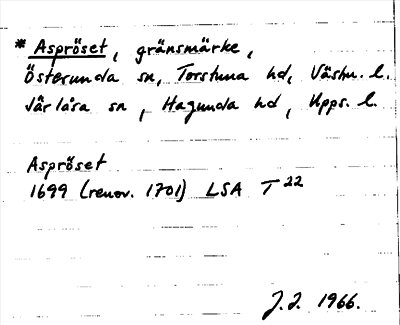 * Aspröset, gränsmärke,
Österunda sn, Torstuna hd, Västm. l.
Järlåsa sn, Hagunda hd, Upps. l.
Aspröset
1699 (renov. 1701) LSA T 22
J. J. 1966.